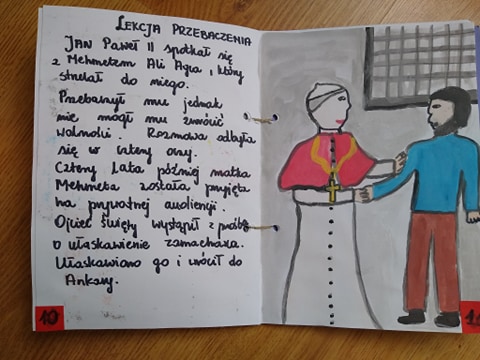 LEKCJA PRZEBACZENIA
JAN PAWEŁ II spotkał się
z Mehmetem Ali Agca, który
strzelał do niego.
Przebaczył mu jednak
nie mógł mu zwrócić
wolności. Rozmowa odbyła
się w cztery oczy.
Cztery lata później matka
Mehmeta została przyjęta
na prywatnej audiencji.
Ojciec święty wystąpił z prośbą
o ułaskawienie zamachowca.
Ułaskawiono go i wrócił do
Ankary.
10
11